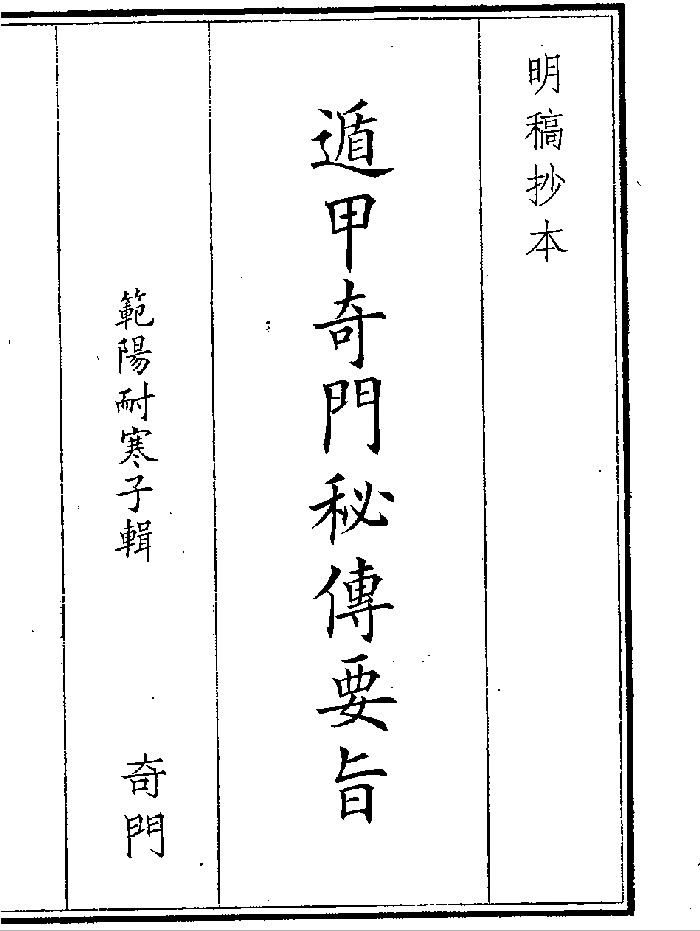 明稿抄本
遁甲奇門秘傳要旨
範陽耐寒子輯
奇門